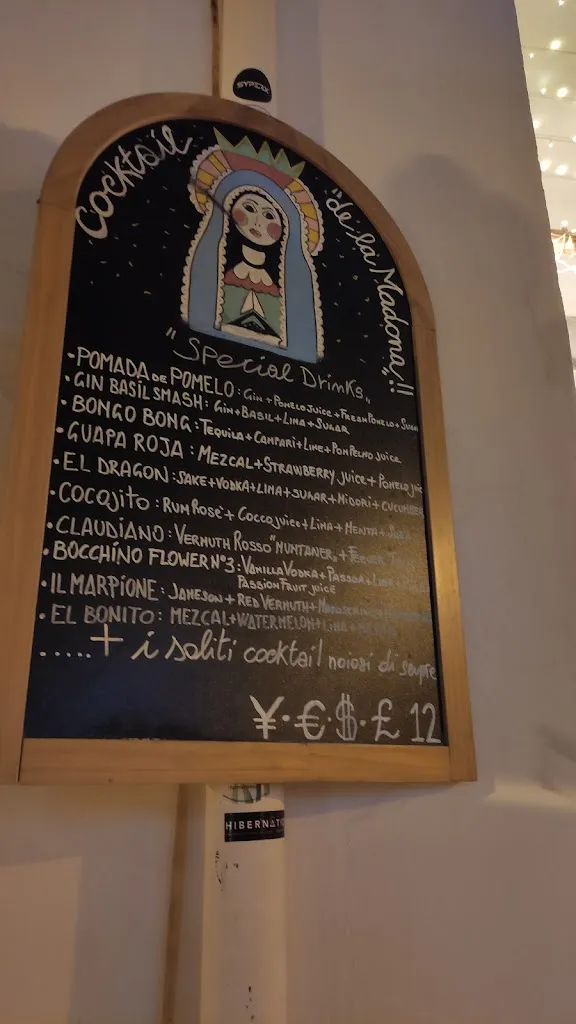 SYPEX
Cocktail "de la Madona"!!
"Special Drinks"
• POMADA DE POMELO: GIN + POMELO JUICE + FRESH POMELO + SUGAR
• GIN BASIL SMASH: GIN + BASIL + LIMA + SUGAR
• BONGO BONG: TEQUILA + CAMPARI + LIME + POMPELMO JUICE
• GUAPA ROJA: MEZCAL + STRAWBERRY JUICE + POMELO JUICE
• EL DRAGON: SAKE + VODKA + LIMA + SUGAR + MIDORI + CUCUMBER
• COCOJITO: RUM ROSÉ + COCCO JUICE + LIMA + MENTA +
• CLAUDIANO: VERMUTH ROSSO "MUNTANER" +
• BOCCHINO FLOWER N°3: VANILLA VODKA + PASSOA +
PASSION FRUIT JUICE
• IL MARPIONE: JAMESON + RED VERMUTH +
• EL BONITO: MEZCAL + WATERMELON + LIMA +
.....+ i soliti cocktail noiosi di sempre
¥·€·$·£ 12
HIBERNATI